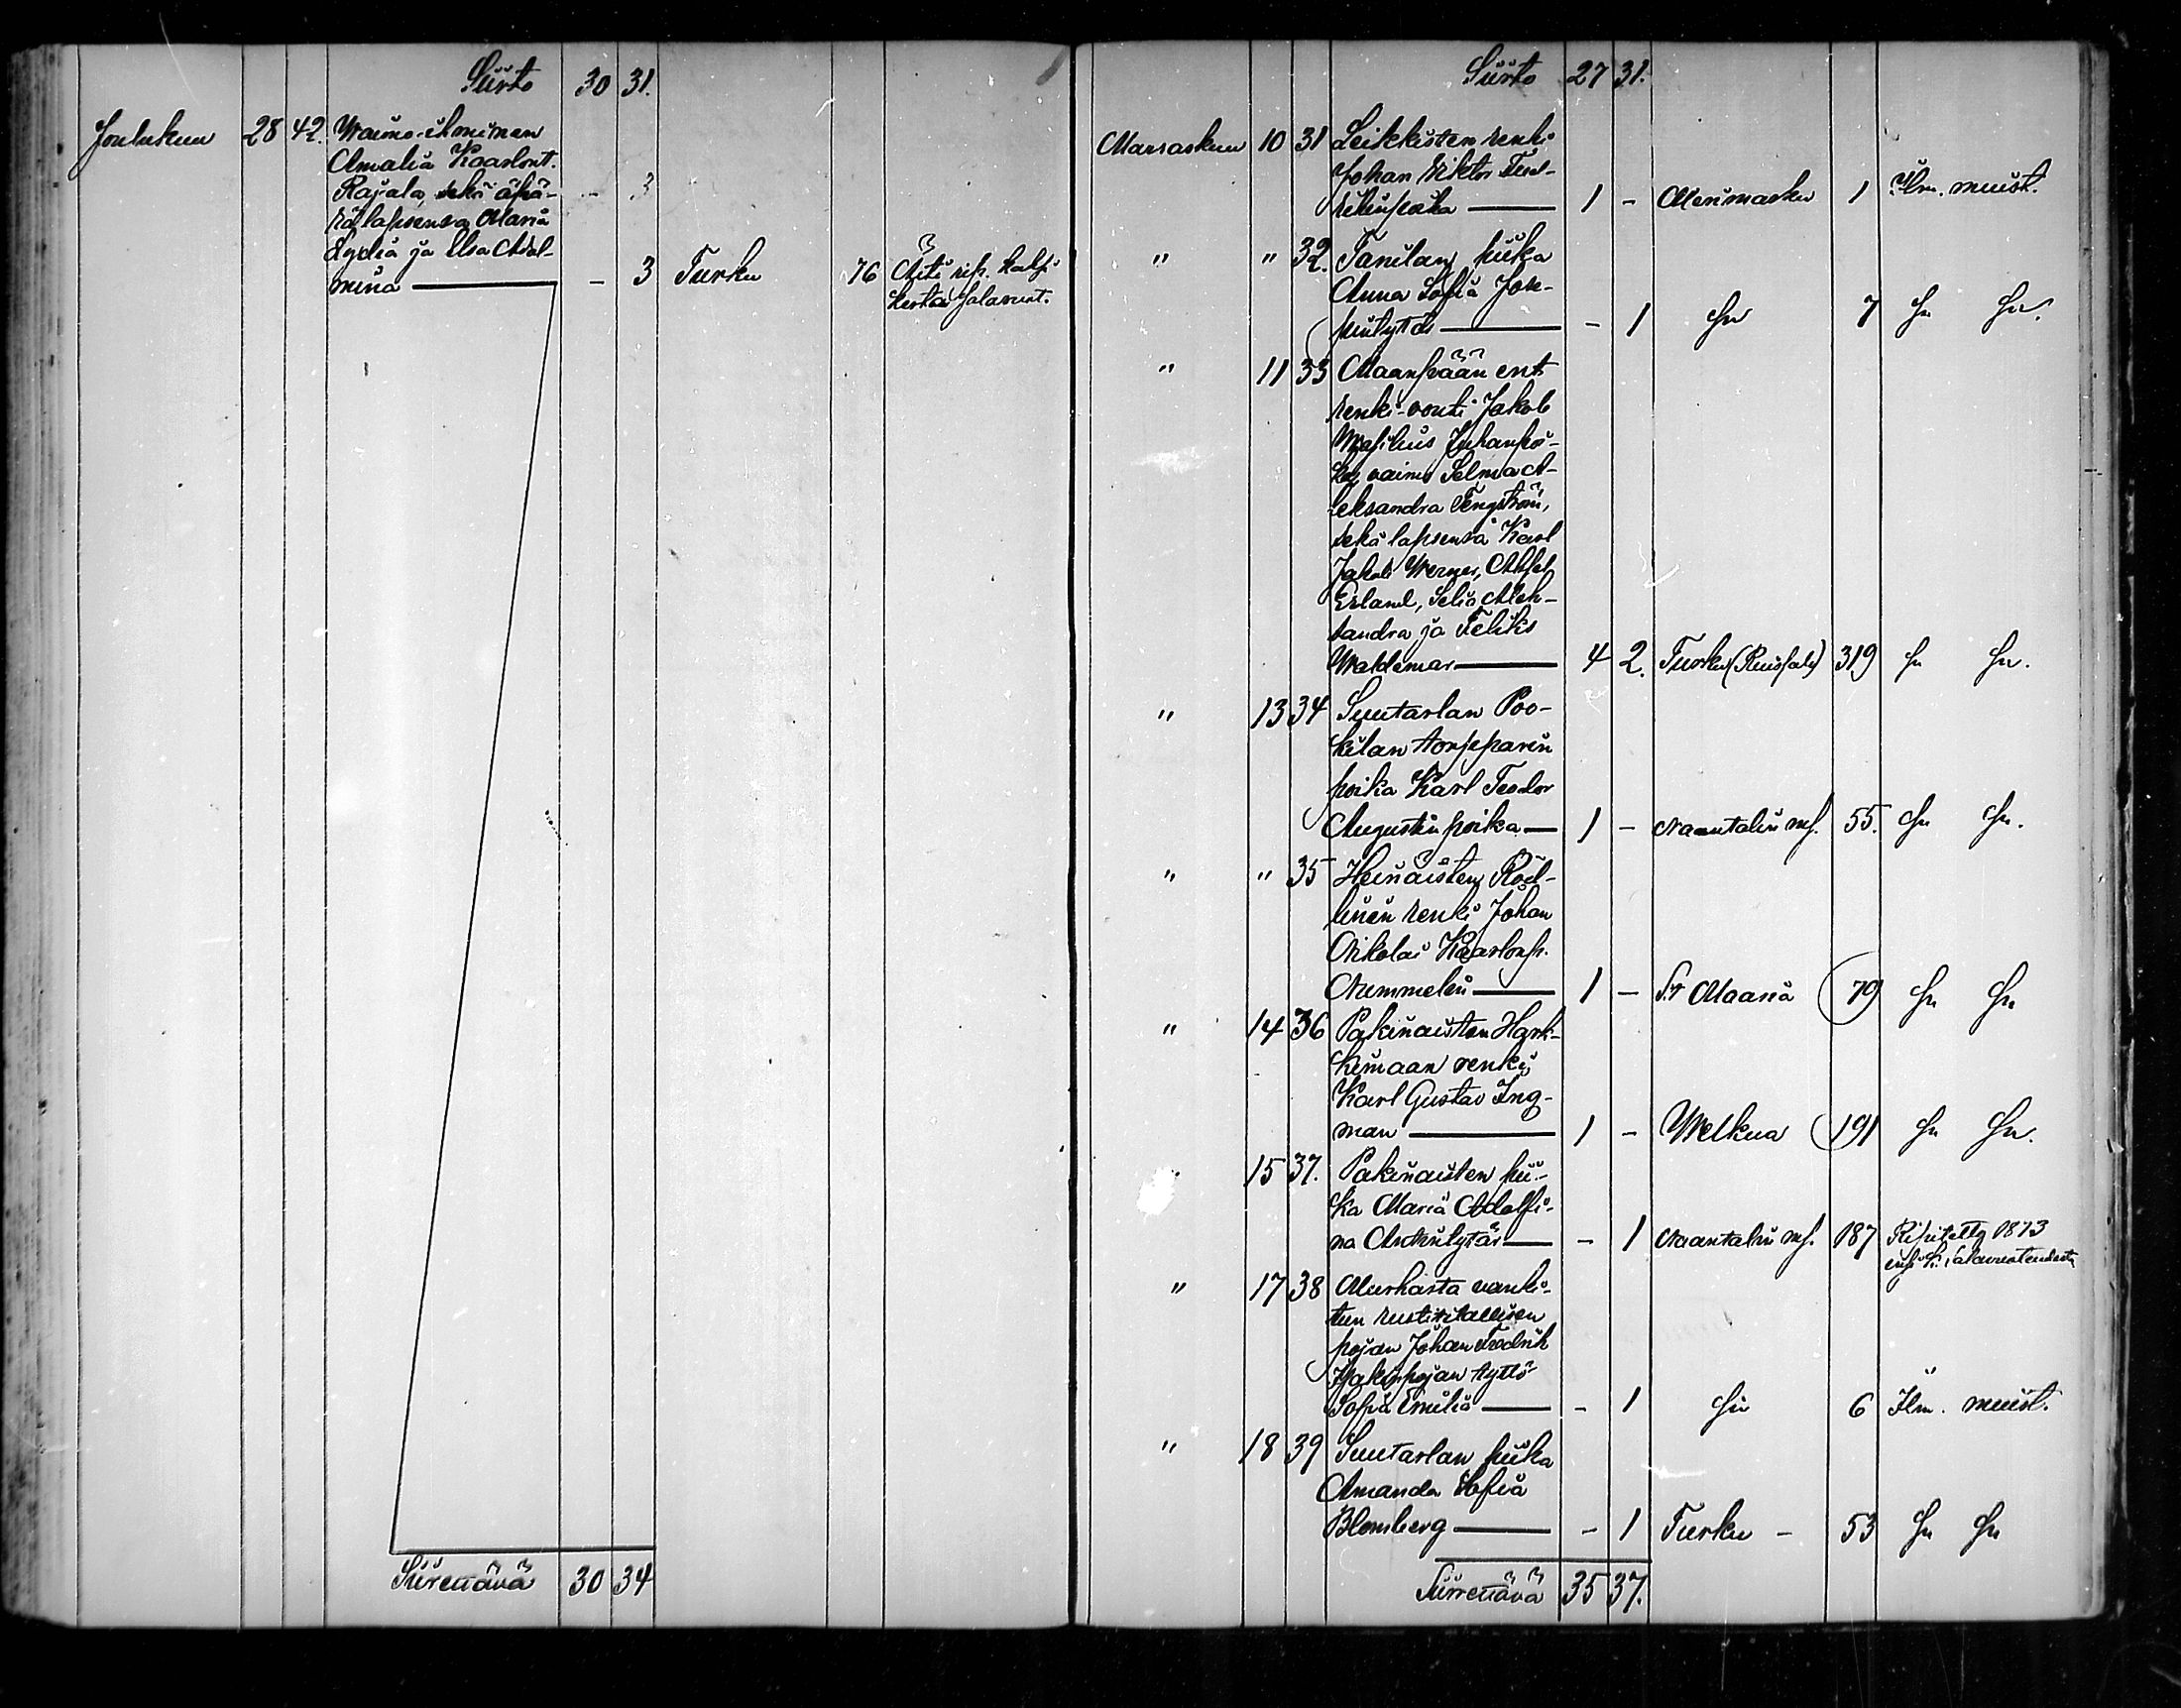 Siirto 30 31.
Joulukuu 28 42. Waimo-ihminen
Amalia Kaarlont.
Rajala, sekä äpä- - 3
rälapsensa Maria
Lydia ja Elsa Adol-
mina - 3 Turku 76 Äiti rip. halpi
kertaa Jalavust.
Siirrettävä 30 34
Siirto 27 31.
Marraskuu 10 31 Leikkisten renki
Johan Viktor Fred-
rikinpoika 1 - Merimasku 1 Ilm. muist.
" " 32. Tanilan piika
Anna Sofia Jose-
pintytär - 1 Sn 7 Sn Sn.
" 11 33 Maanpään ent.
renki-vouti Jakob
Juhanpoi-
ka, vaimo Selma A-
leksandra Tengström,
sekä lapsensa Karl
Jakob Werner, Aksel
Erland, Selia Alek-
sandra ja Feliks
Waldemar 4 2. Turku (Ruissalo) 319 Sn Sn.
" 13 34 Suutarlan Poo-
kilan torpparin
poika Karl Teodor
Augustin poika 1 - Naantalin ms. 55. Sn Sn.
" " 35 Heinäisten Röd-
linin renki Johan
Nikolai Kaarlonp.
Nummelin 1 - St Maaria 79 Sn Sn
" 14 36 Pakinaisten Hark-
kimaan renki
Karl Gustav Ing-
man 1 - Welkua 191 Sn Sn.
15 37. Pakinaisten pii-
ka Maria Adolfi-
na Antintytär - 1 Naantalin ms. 187 Ripitetty 1873
" 17 38 Murhasta vanki-
tun rustitilallisen
pojan Johan Fredrik
Isakinpojan tyttö
Sofia Emilia - 1 Sn 6 Ilm. muist.
" 18 39 Suutarlan piika
Amanda Sofia
Blomberg - 1 Turku - 53 Sn Sn
Siirrettävä 35 37.